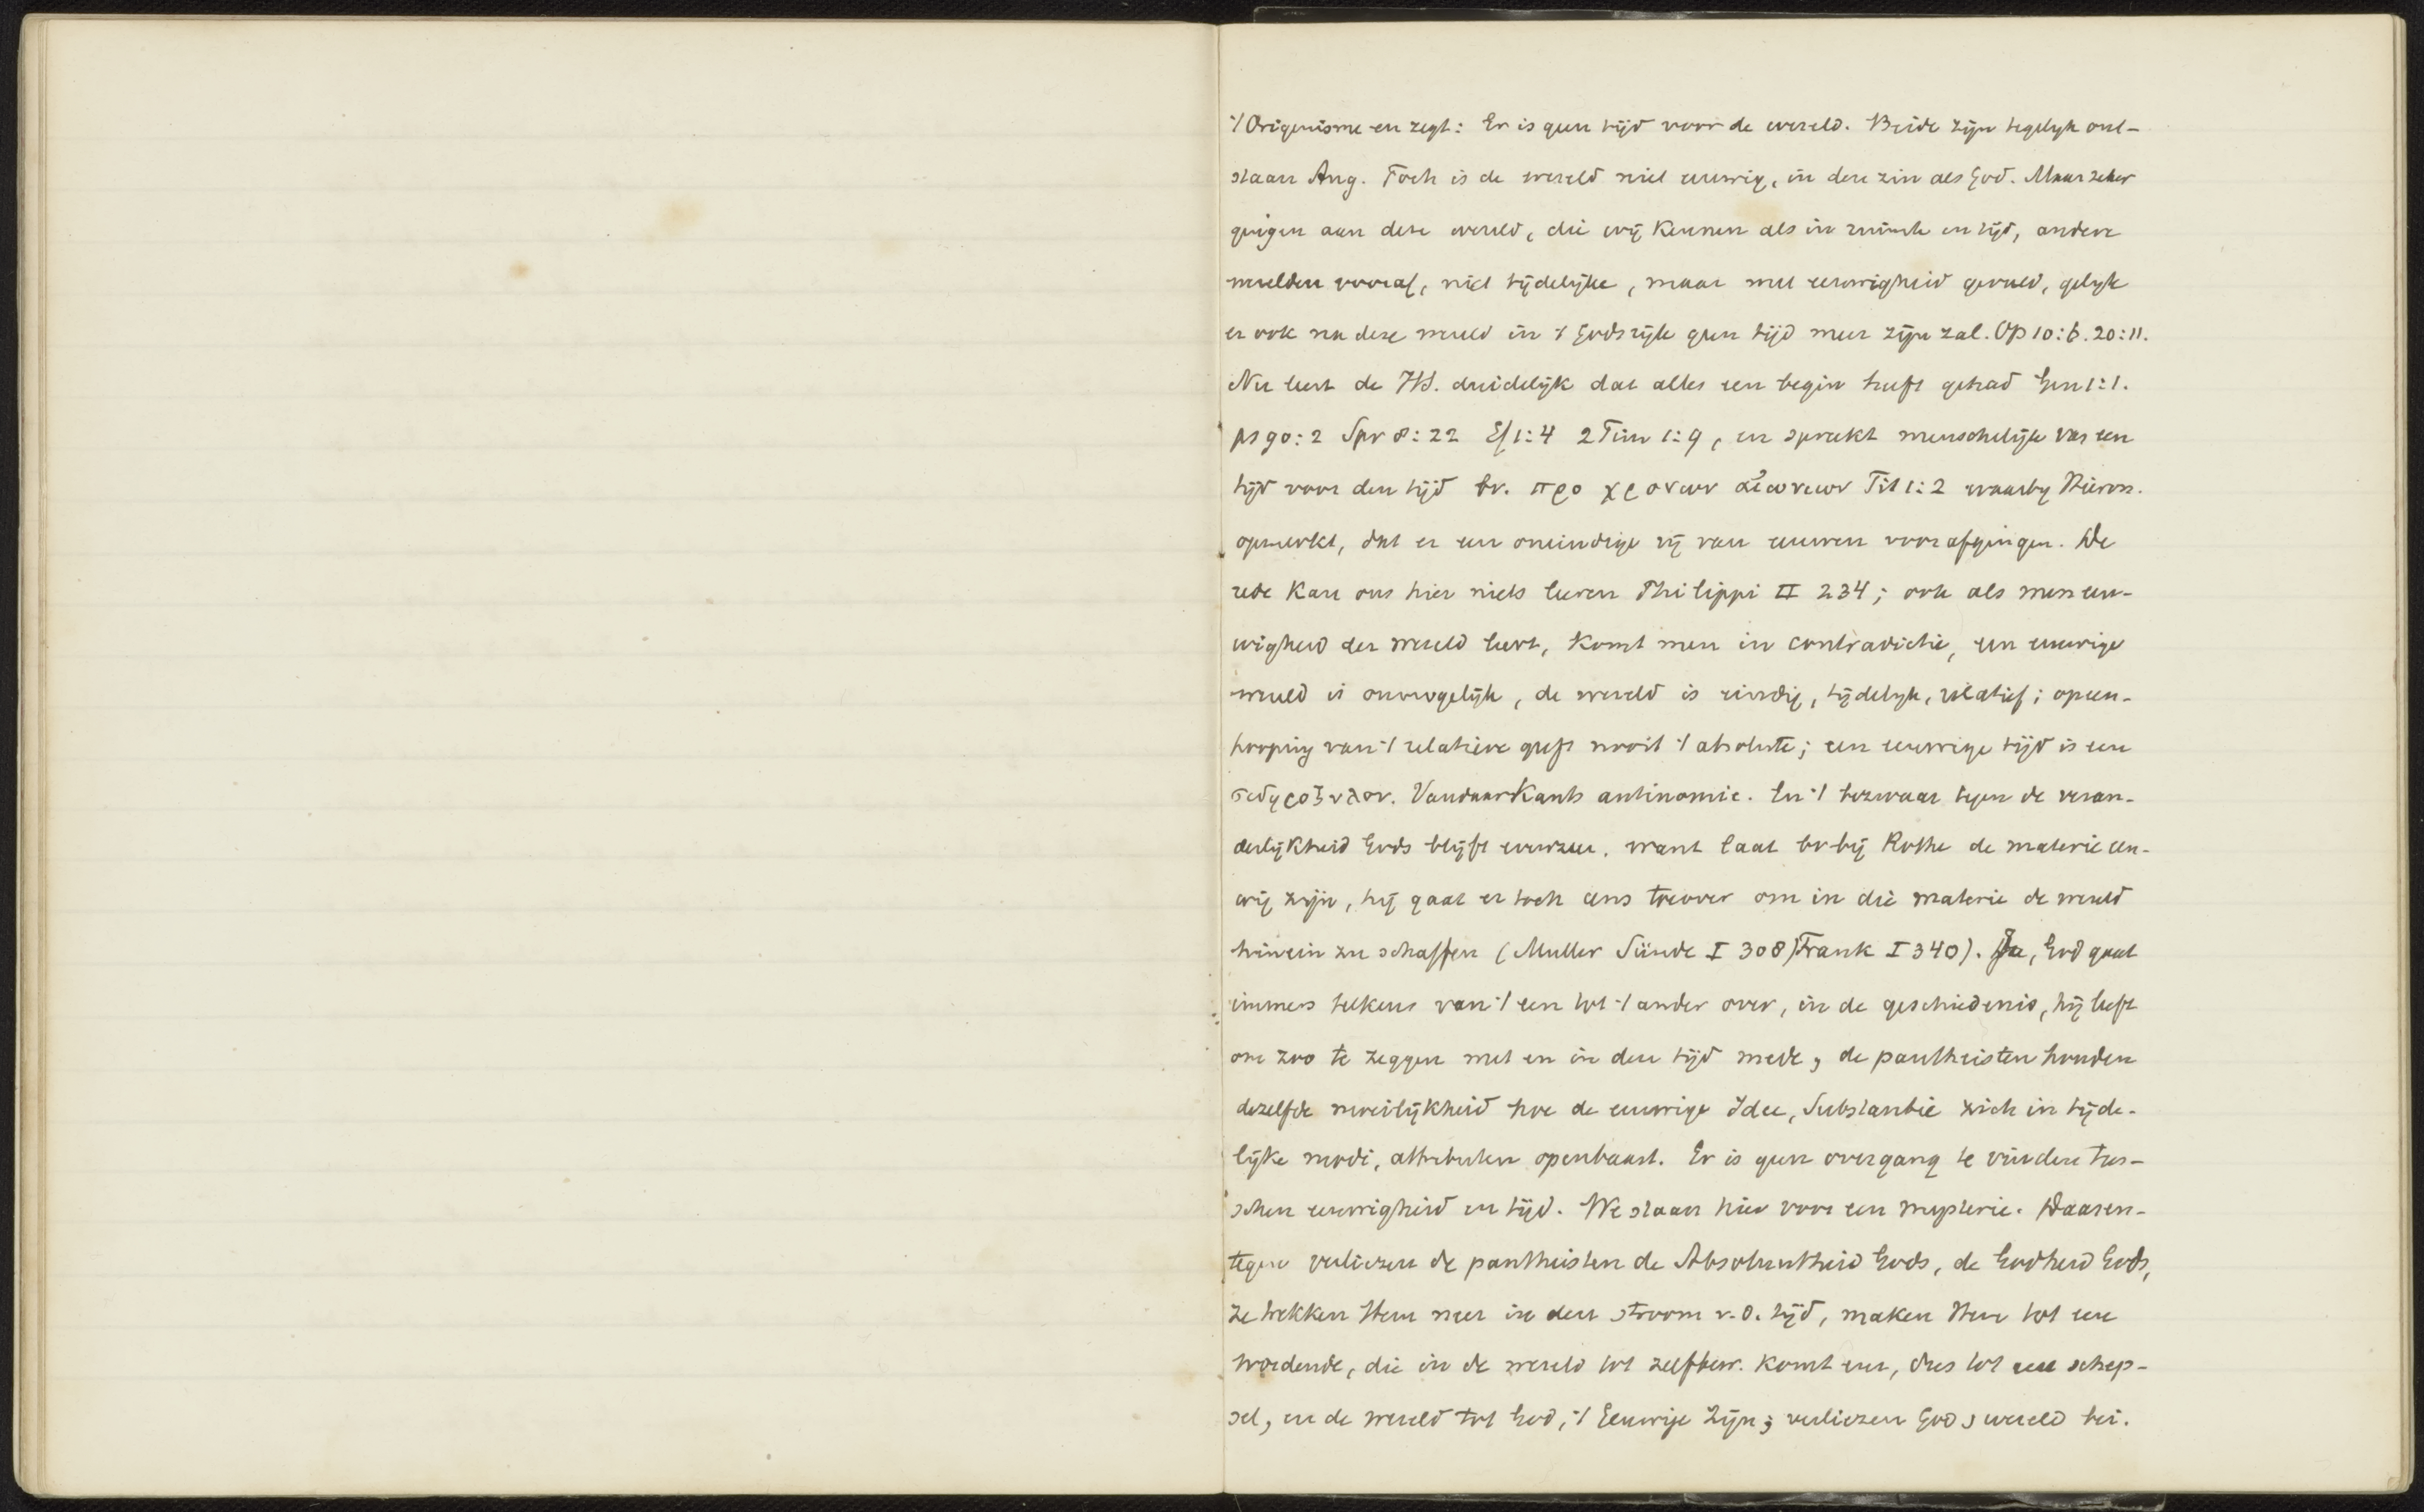 't Origenisme en zegt: Er is geen tijd voor de wereld. Beide zijn tegelijk ont-
staan Aug. Toch is de wereld niet eeuwig, in den zin als God. Maar zeker
gingen aan deze wereld, die wij kennen als in ruimte en tijd, andere
werelden vooraf, niet tijdelijke, maar met eeuwigheid gevuld, gelijk
er ook na deze wereld in 't Godsrijk geen tijd meer zijn zal. Op 10:6. 20:11.
Nu leert de HS. duidelijk dat alles een begin heeft gehad Gen 1:1.
ps 90:2 Spr 8:22 Ef 1:4 2 Tim 1:9, en spreekt menschelijk van een
tijd voor den tijd bv. προ χρονων αἰωνιων Tit 1:2 waarbij Hieron.
opmerkt, dat er een oneindige rij van eeuwen voorafgingen. De
rede kan ons hier niets leeren Philippi II 234; ook als men eeu-
wigheid der wereld leert, komt men in contradictie, een eeuwige
wereld is onmogelijk, de wereld is eindig, tijdelijk, relatief; opeen-
hooping van 't relatieve geeft nooit 't absolute; een eeuwige tijd is een
σιδηροξυλον. Vandaar Kants antinomie. En 't bezwaar tegen de veran-
derlijkheid Gods blijft evenzeer. want laat bv bij Rothe de materie eeu-
wig zijn, hij gaat er toch eens toe over om in die materie de wereld
hinein zu schaffen (Muller Sünde I 308) Frank I 340). Ja, God gaat
immers telkens van 't een tot 't ander over, in de geschiedenis, hij leeft
om zoo te zeggen met en in den tijd mede, de pantheisten houden
dezelfde moeilijkheid hoe de eeuwige Idee, Substantie zich in tijde-
lijke modi, attributen openbaart. Er is geen overgang te vinden tus-
schen eeuwigheid en tijd. We staan hier voor een mysterie. Daaren-
tegen verliezen de pantheisten de Absoluutheid Gods, de Godheid Gods,
ze trekken Hem neer in den stroom v. d. tijd, maken Hem tot een
wordende, die in de wereld tot zelfbew. komt enz, dus tot een schep-
sel, en de wereld tot God, 't Eeuwige Zijn; verliezen God & wereld bei.